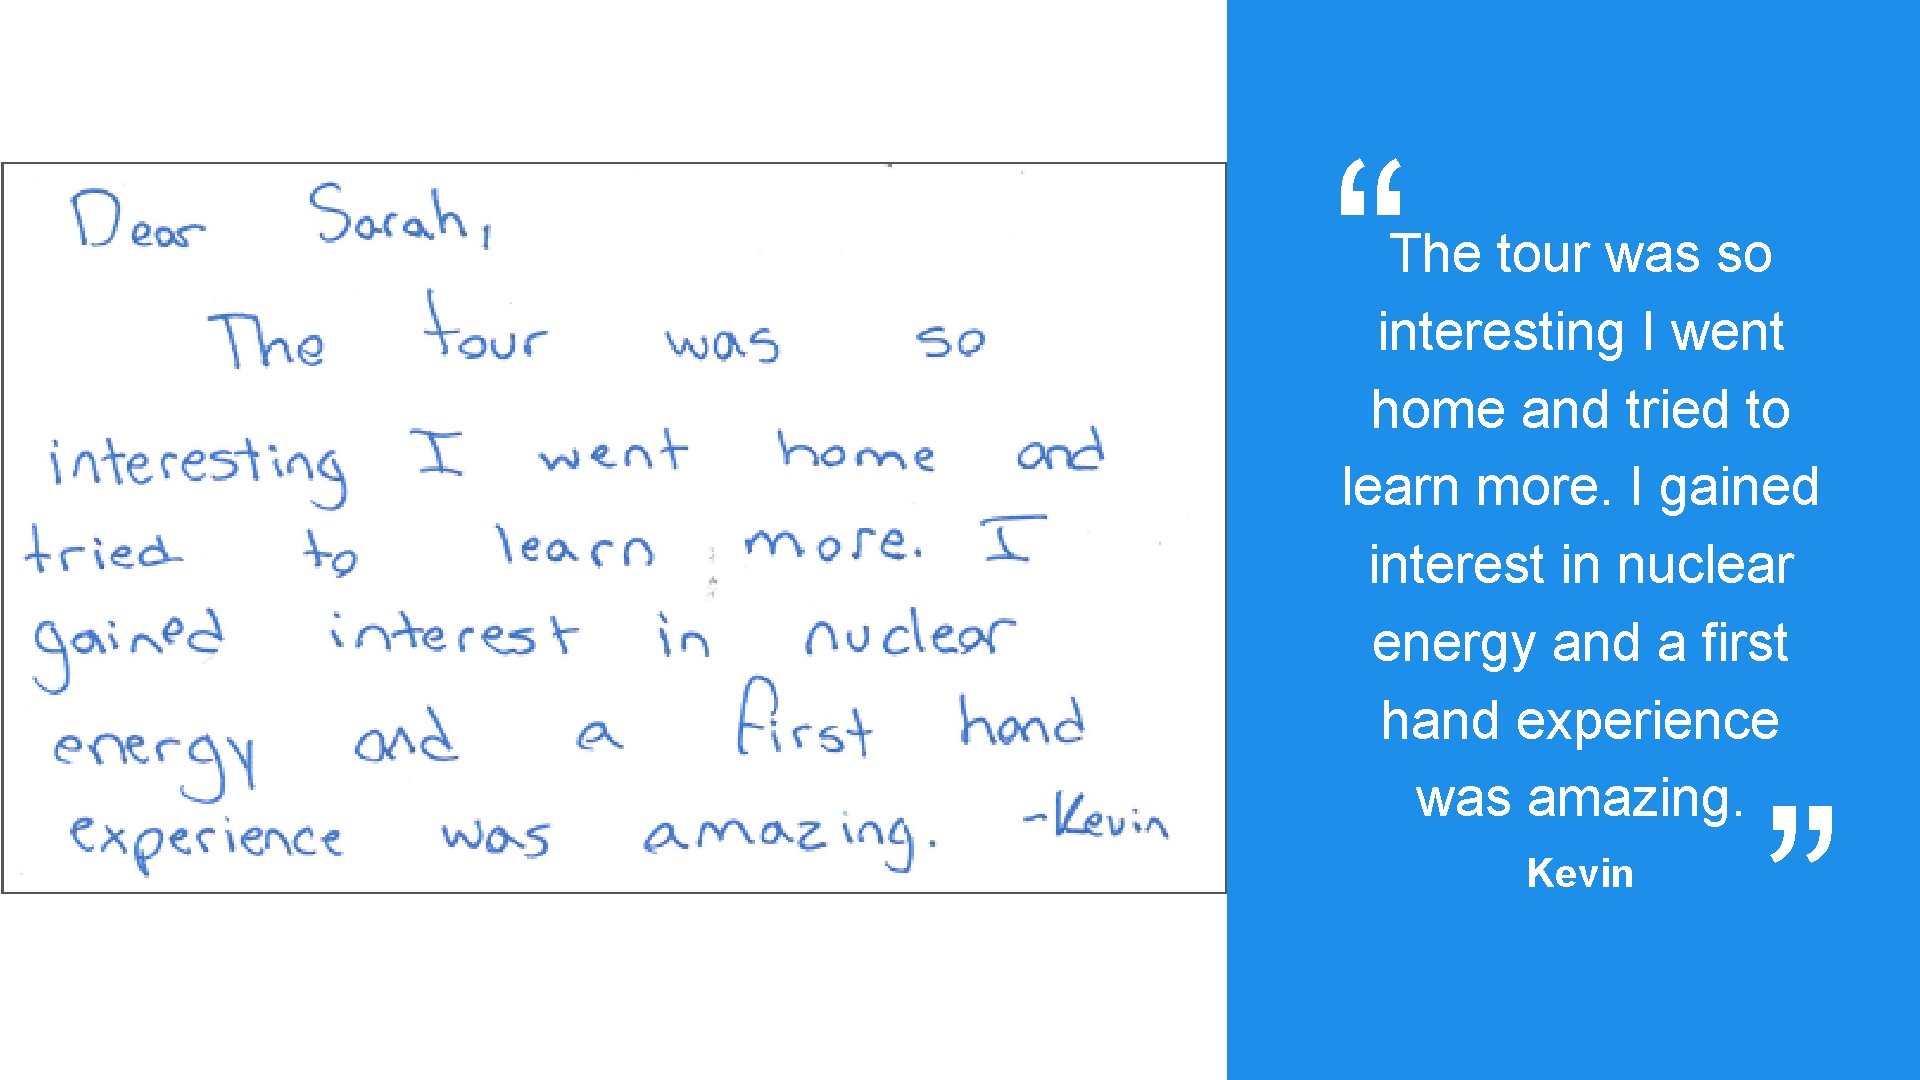 Dear Sarah,
The tour was so
interesting I went home and
tried to learn more. I
gained interest in nuclear
energy and a first hand
experience was amazing. -Kevin
“
The tour was so
interesting I went
home and tried to
learn more. I gained
interest in nuclear
energy and a first
hand experience
was amazing.
”
Kevin